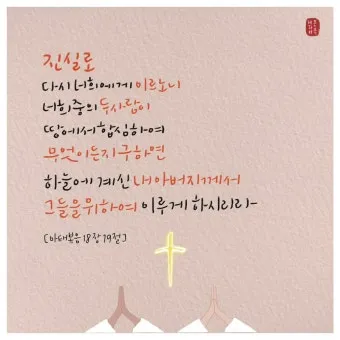 진실로
다시 너희에게 이르노니
너희 중의 두 사람이
땅에서 합심하여
무엇이든지 구하면
하늘에 계신 내 아버지께서
그들을 위하여 이루게 하시리라
[마태복음 18장 19절]